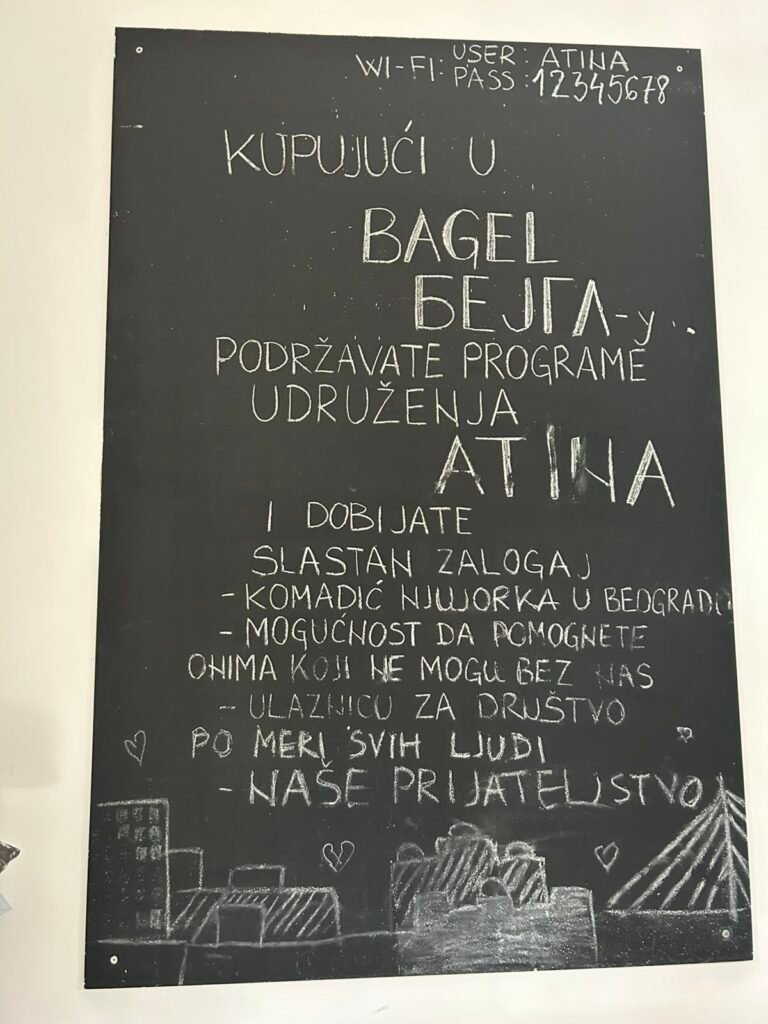 WI-FI: USER: ATINA
PASS: 12345678
KUPUJUĆI U
BAGEL
БЕЈГЛ-у...
PODRŽAVATE PROGRAME
UDRUŽENJA
ATINA
I DOBIJATE
SLASTAN ZALOGAJ
- KOMADIĆ NJUJORKA U BEOGRADU
- MOGUĆNOST DA POMOGNETE
ONIMA KOJI NE MOGU BEZ NAS
- ULAZNICU ZA DRUŠTVO
PO MERI SVIH LJUDI
- NAŠE PRIJATELJSTVO